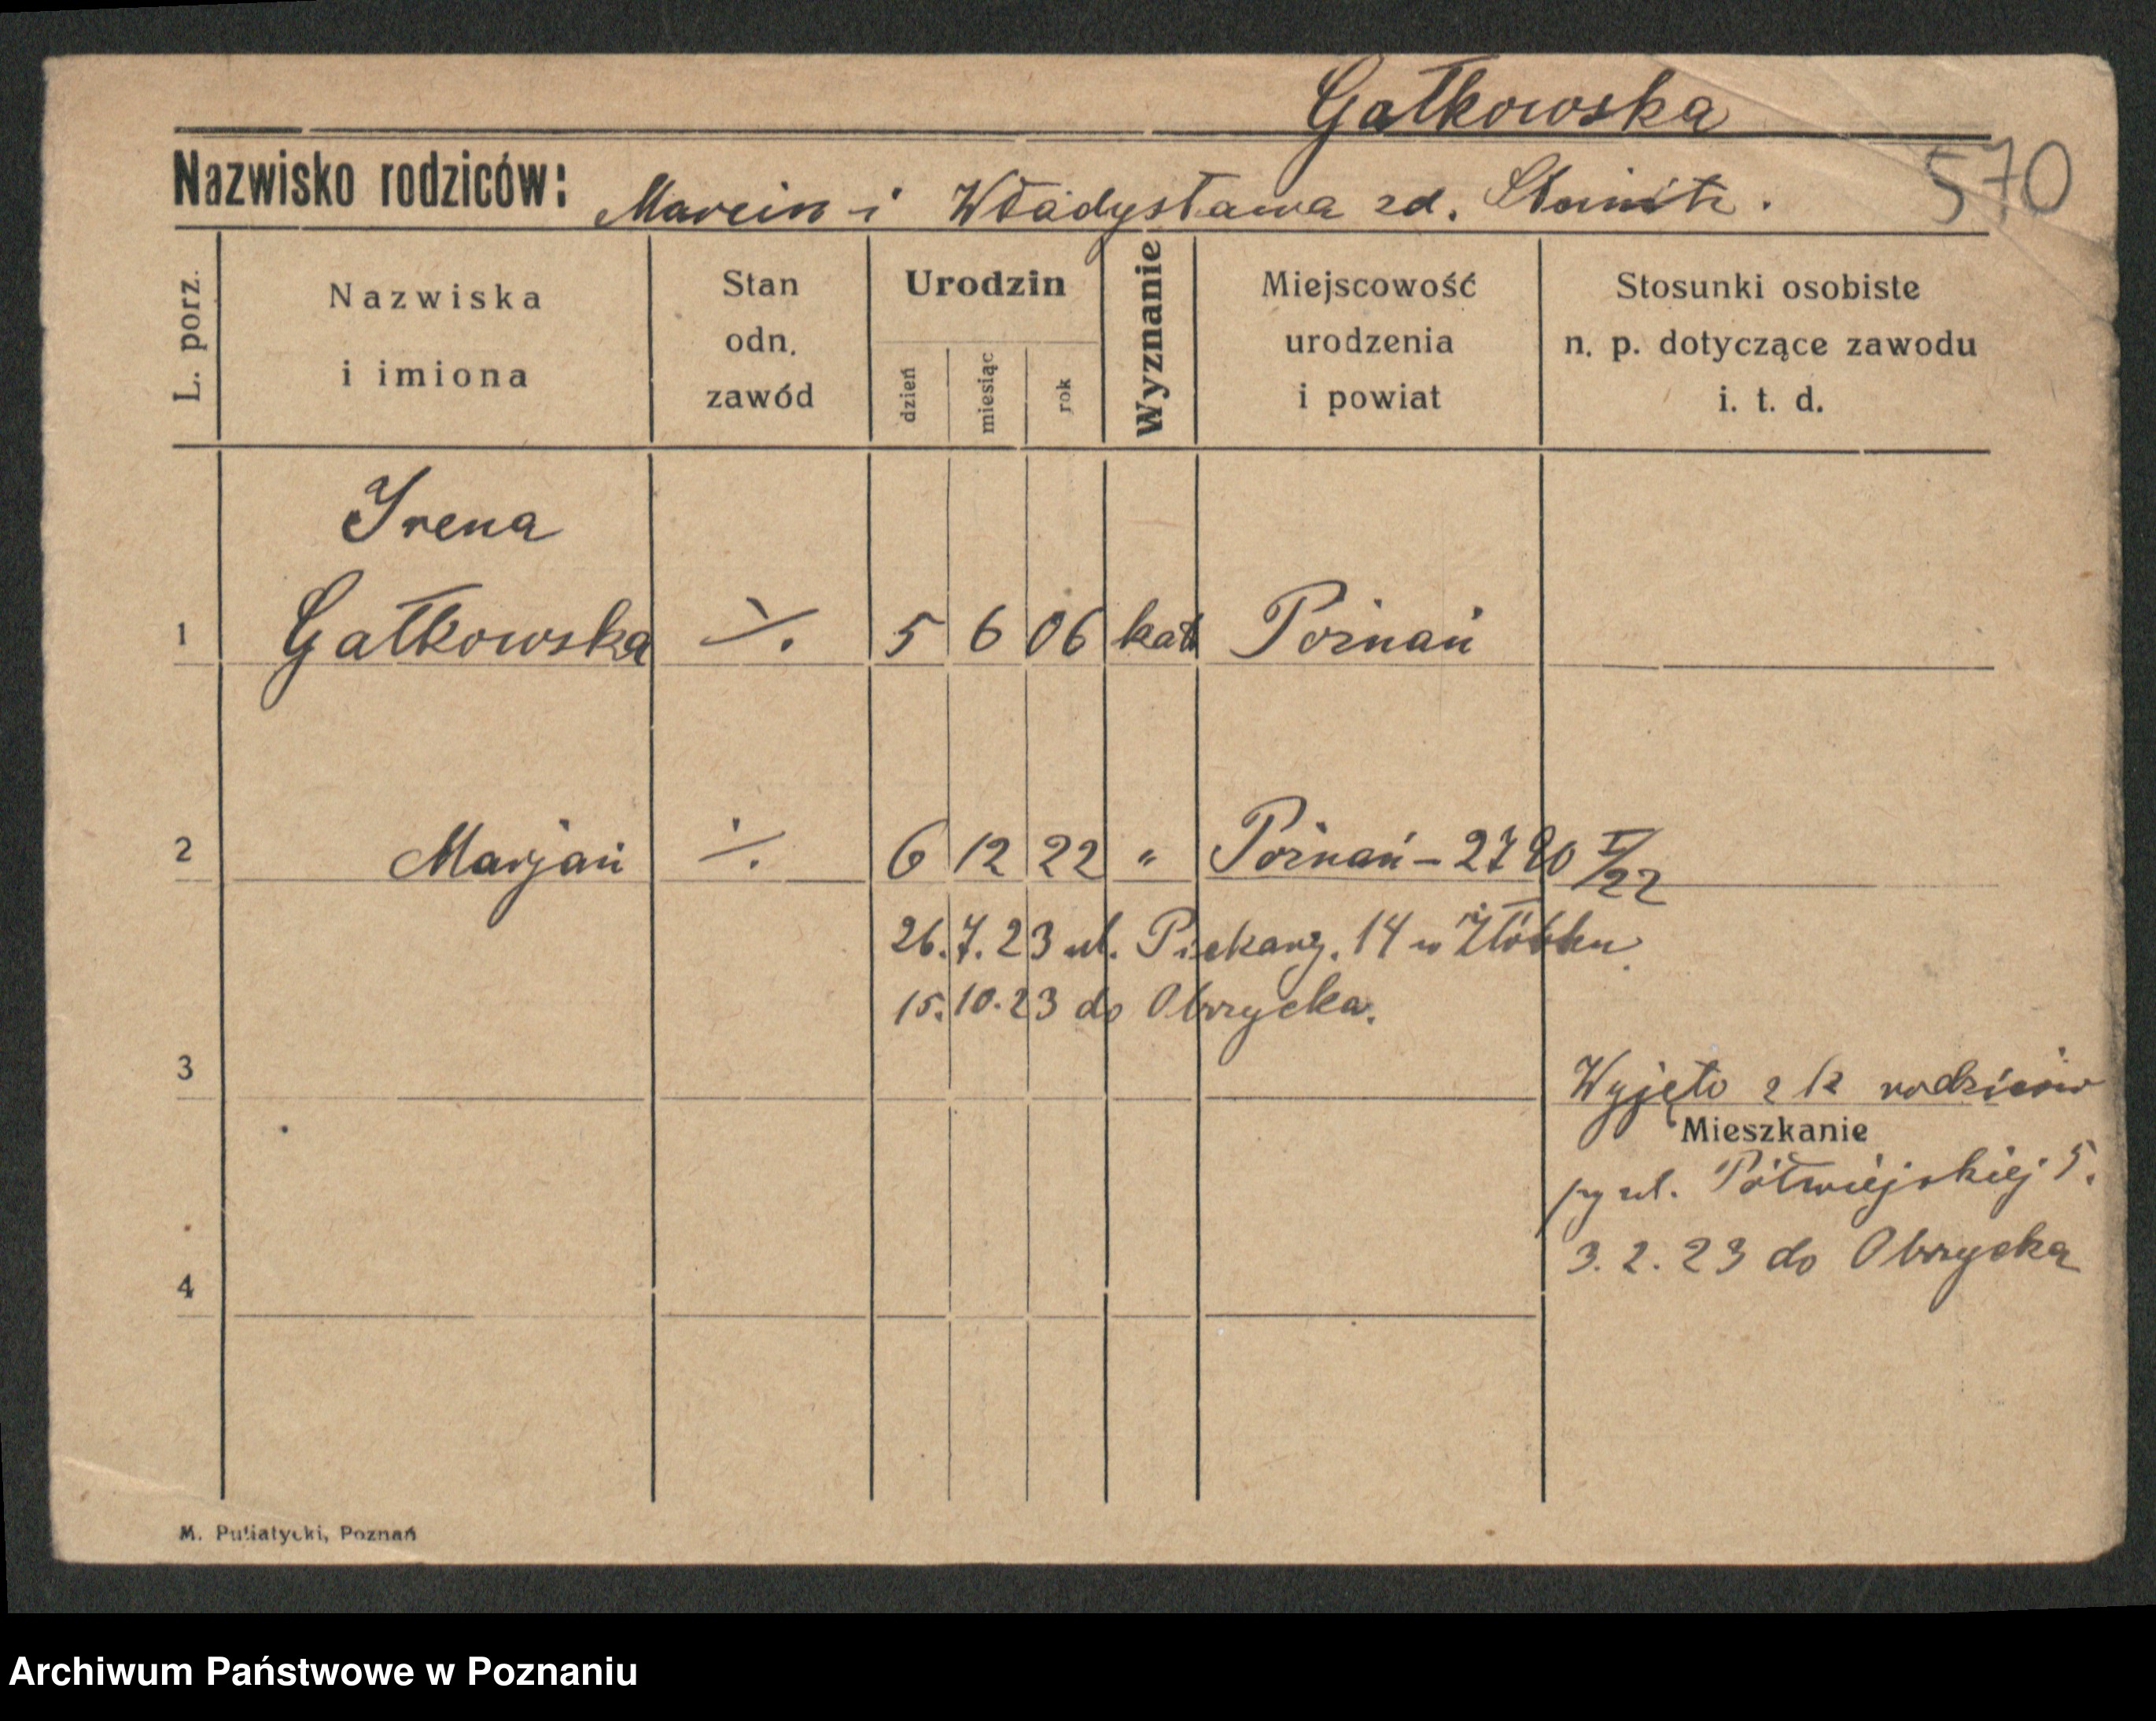 Gałkowska
Nazwisko rodziców: Marcin i Władysława zd.
570
L. porz.
Nazwiska
i imiona
Stan
odn.
zawód
Urodzin
dzień
miesiąc
rok
Wyznanie
Miejscowość
urodzenia
i powiat
Stosunki osobiste
n. p. dotyczące zawodu
i. t. d.
Irena
1 Gałkowska ./. 5 6 06 kat Poznań
2 Marjan ./. 6 12 22 " Poznań - 2780 I/22
26.7.23 ul. Piekary. 14 w Żłóbku
15.10.23 do Obrzycka.
3
Wyjęto z k rodziców
Mieszkanie
py ul. Półwiejskiej 5.
3.2.23 do Obrzycka
4
M. Putiatycki, Poznań
Archiwum Państwowe w Poznaniu